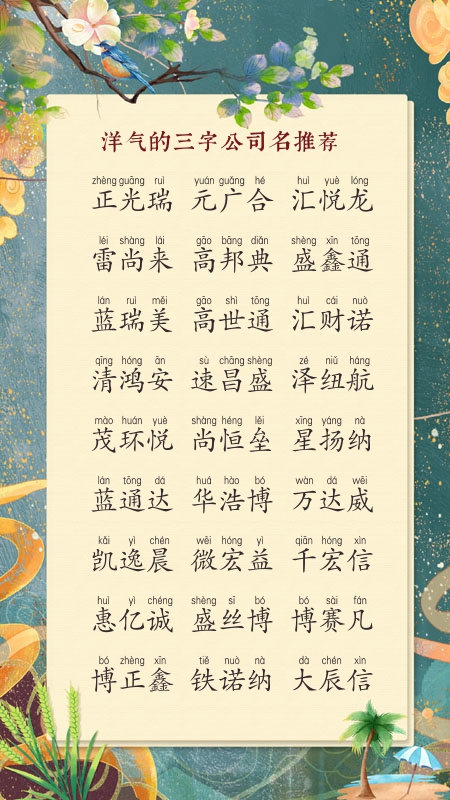 洋气的三字公司名推荐
zhèng guāng ruì yuán guǎng hé huì yuè lóng
正光瑞 元广合 汇悦龙
léi shàng lái gāo bāng diǎn shèng xīn tōng
雷尚来 高邦典 盛鑫通
lán ruì měi gāo shì tōng huì cái nuò
蓝瑞美 高世通 汇财诺
qīng hóng ān sù chāng shèng zé niǔ háng
清鸿安 速昌盛 泽纽航
mào huán yuè shàng héng lěi xīng yáng nà
茂环悦 尚恒垒 星扬纳
lán tōng dá huá hào bó wàn dá wēi
蓝通达 华浩博 万达威
kǎi yì chén wēi hóng yì qiān hóng xìn
凯逸晨 微宏益 千宏信
huì yì chéng shèng sī bó bó sài fán
惠亿诚 盛丝博 博赛凡
bó zhèng xīn tiě nuò nà dà chén xìn
博正鑫 铁诺纳 大辰信